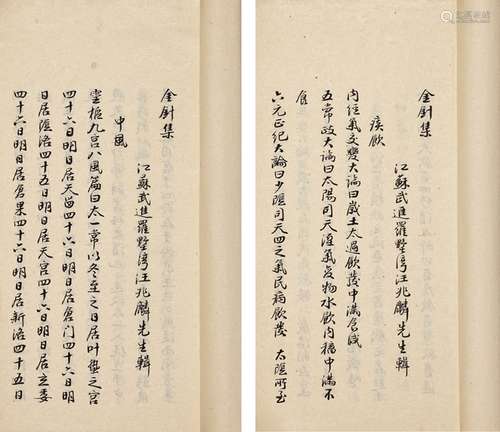 金針集
江蘇武進羅墅灣汪兆麟先生輯
痰飲
內經氣交變大論曰歲土太過飲發中滿食減
五常政大論曰太陽司天溼氣變物水飲內稸中滿不
食
六元正紀大論曰少陰司天四之氣民病飲發 太陰所至
金針集
江蘇武進羅墅灣汪兆麟先生輯
中風
靈樞九宮八風篇曰太一常以冬至之日居叶蟄之宮
四十六日明日居天留四十六日明日居倉門四十六日明
日居陰洛四十五日明日居天宮四十六日明日居玄委
四十六日明日居倉果四十六日明日居新洛四十五日